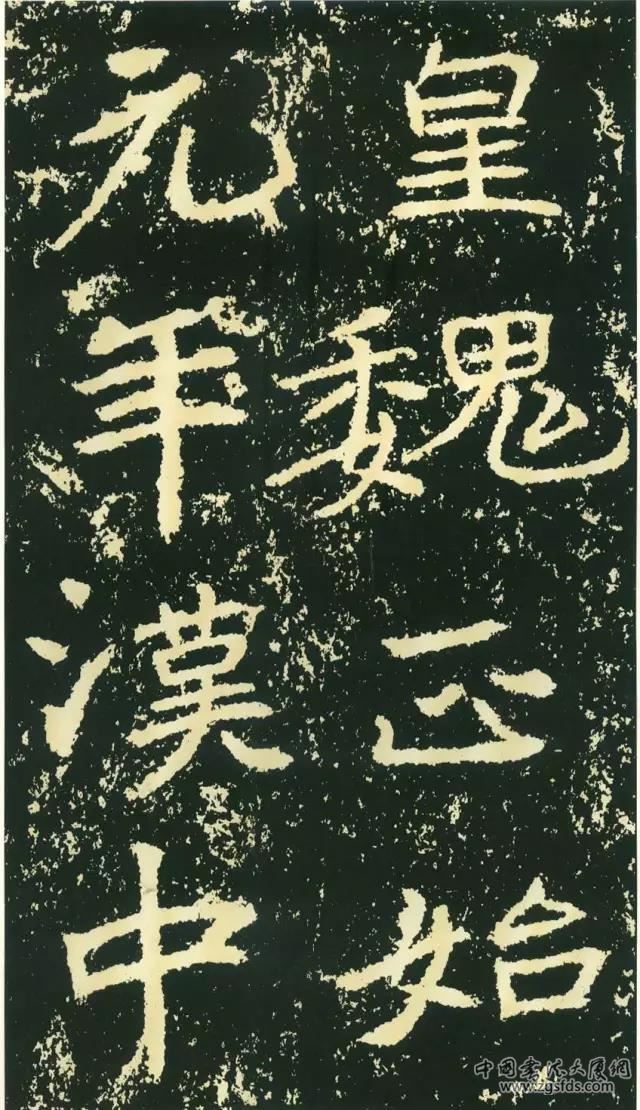 皇魏正始
元年漢中
中国书法大厦网
www.zgsfds.com